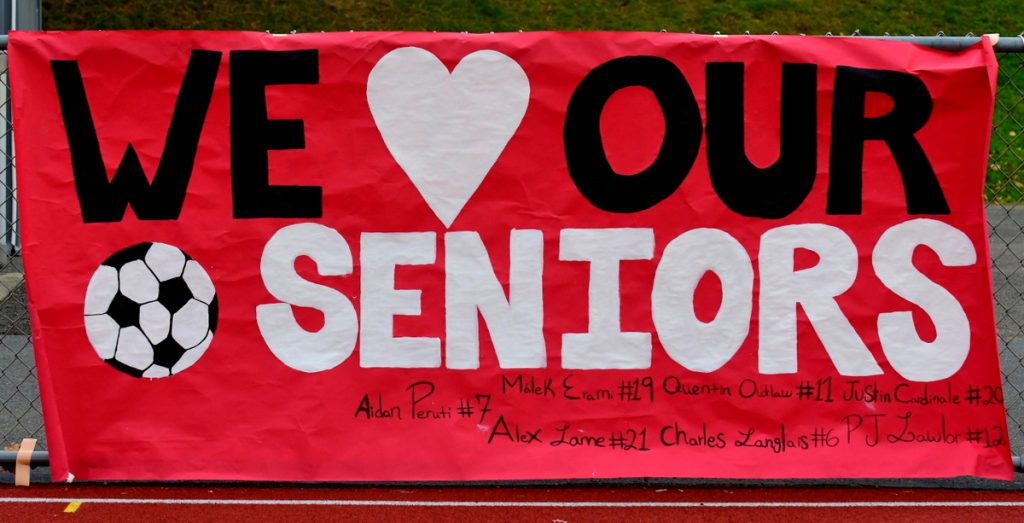 WE OUR
SENIORS
Malek Erami #19 Quentin Outlaw #11 Justin Cardinale #20
Aidan Peruti #7
Alex Lame #21 Charles Langlais #6 PJ Lawlor #12